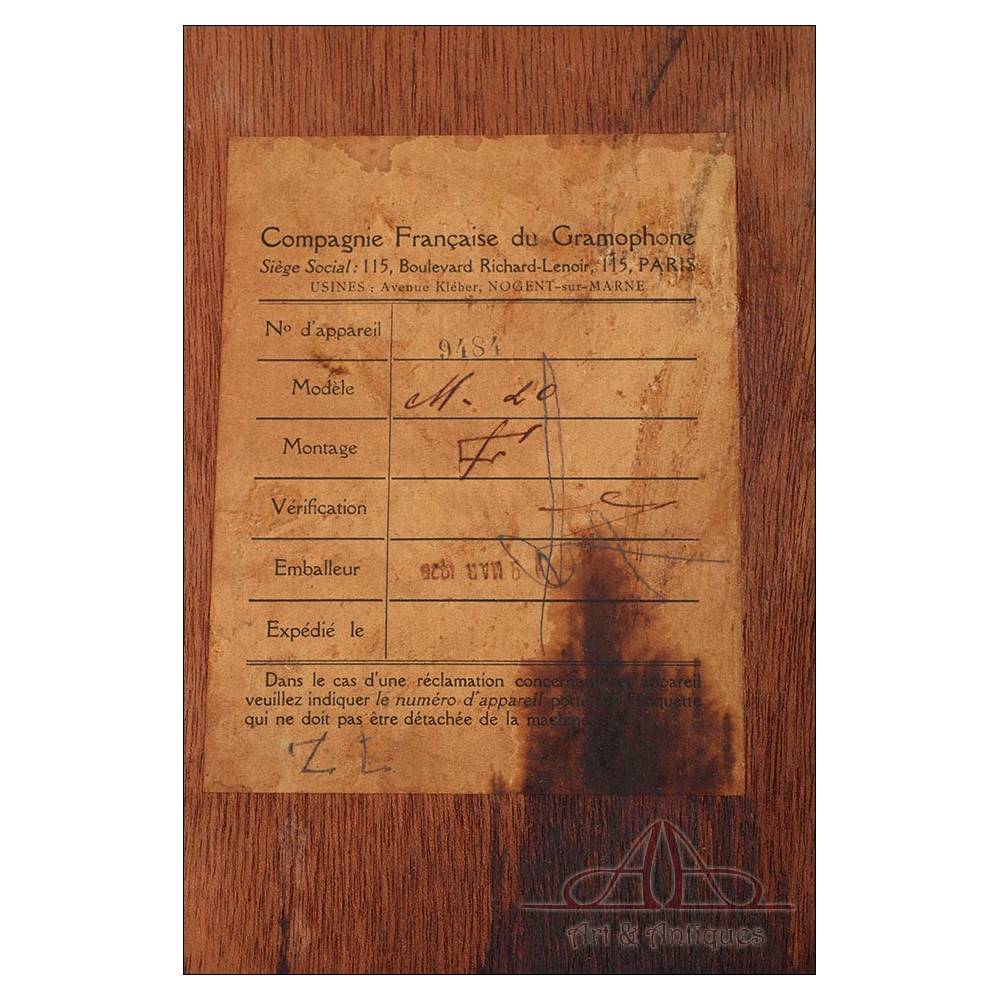 Compagnie Française du Gramophone
Siège Social : 115, Boulevard Richard-Lenoir, 115, PARIS
USINES : Avenue Kléber, NOGENT-sur-MARNE
No d'appareil 9484
Modèle M. 20
Montage
Vérification
Emballeur
Expédié le
Dans le cas d'une réclamation concernant appareil
veuillez indiquer le numéro d'appareil l'étiquette
qui ne doit pas être détachée de la machine
Z L
Art & Antiques